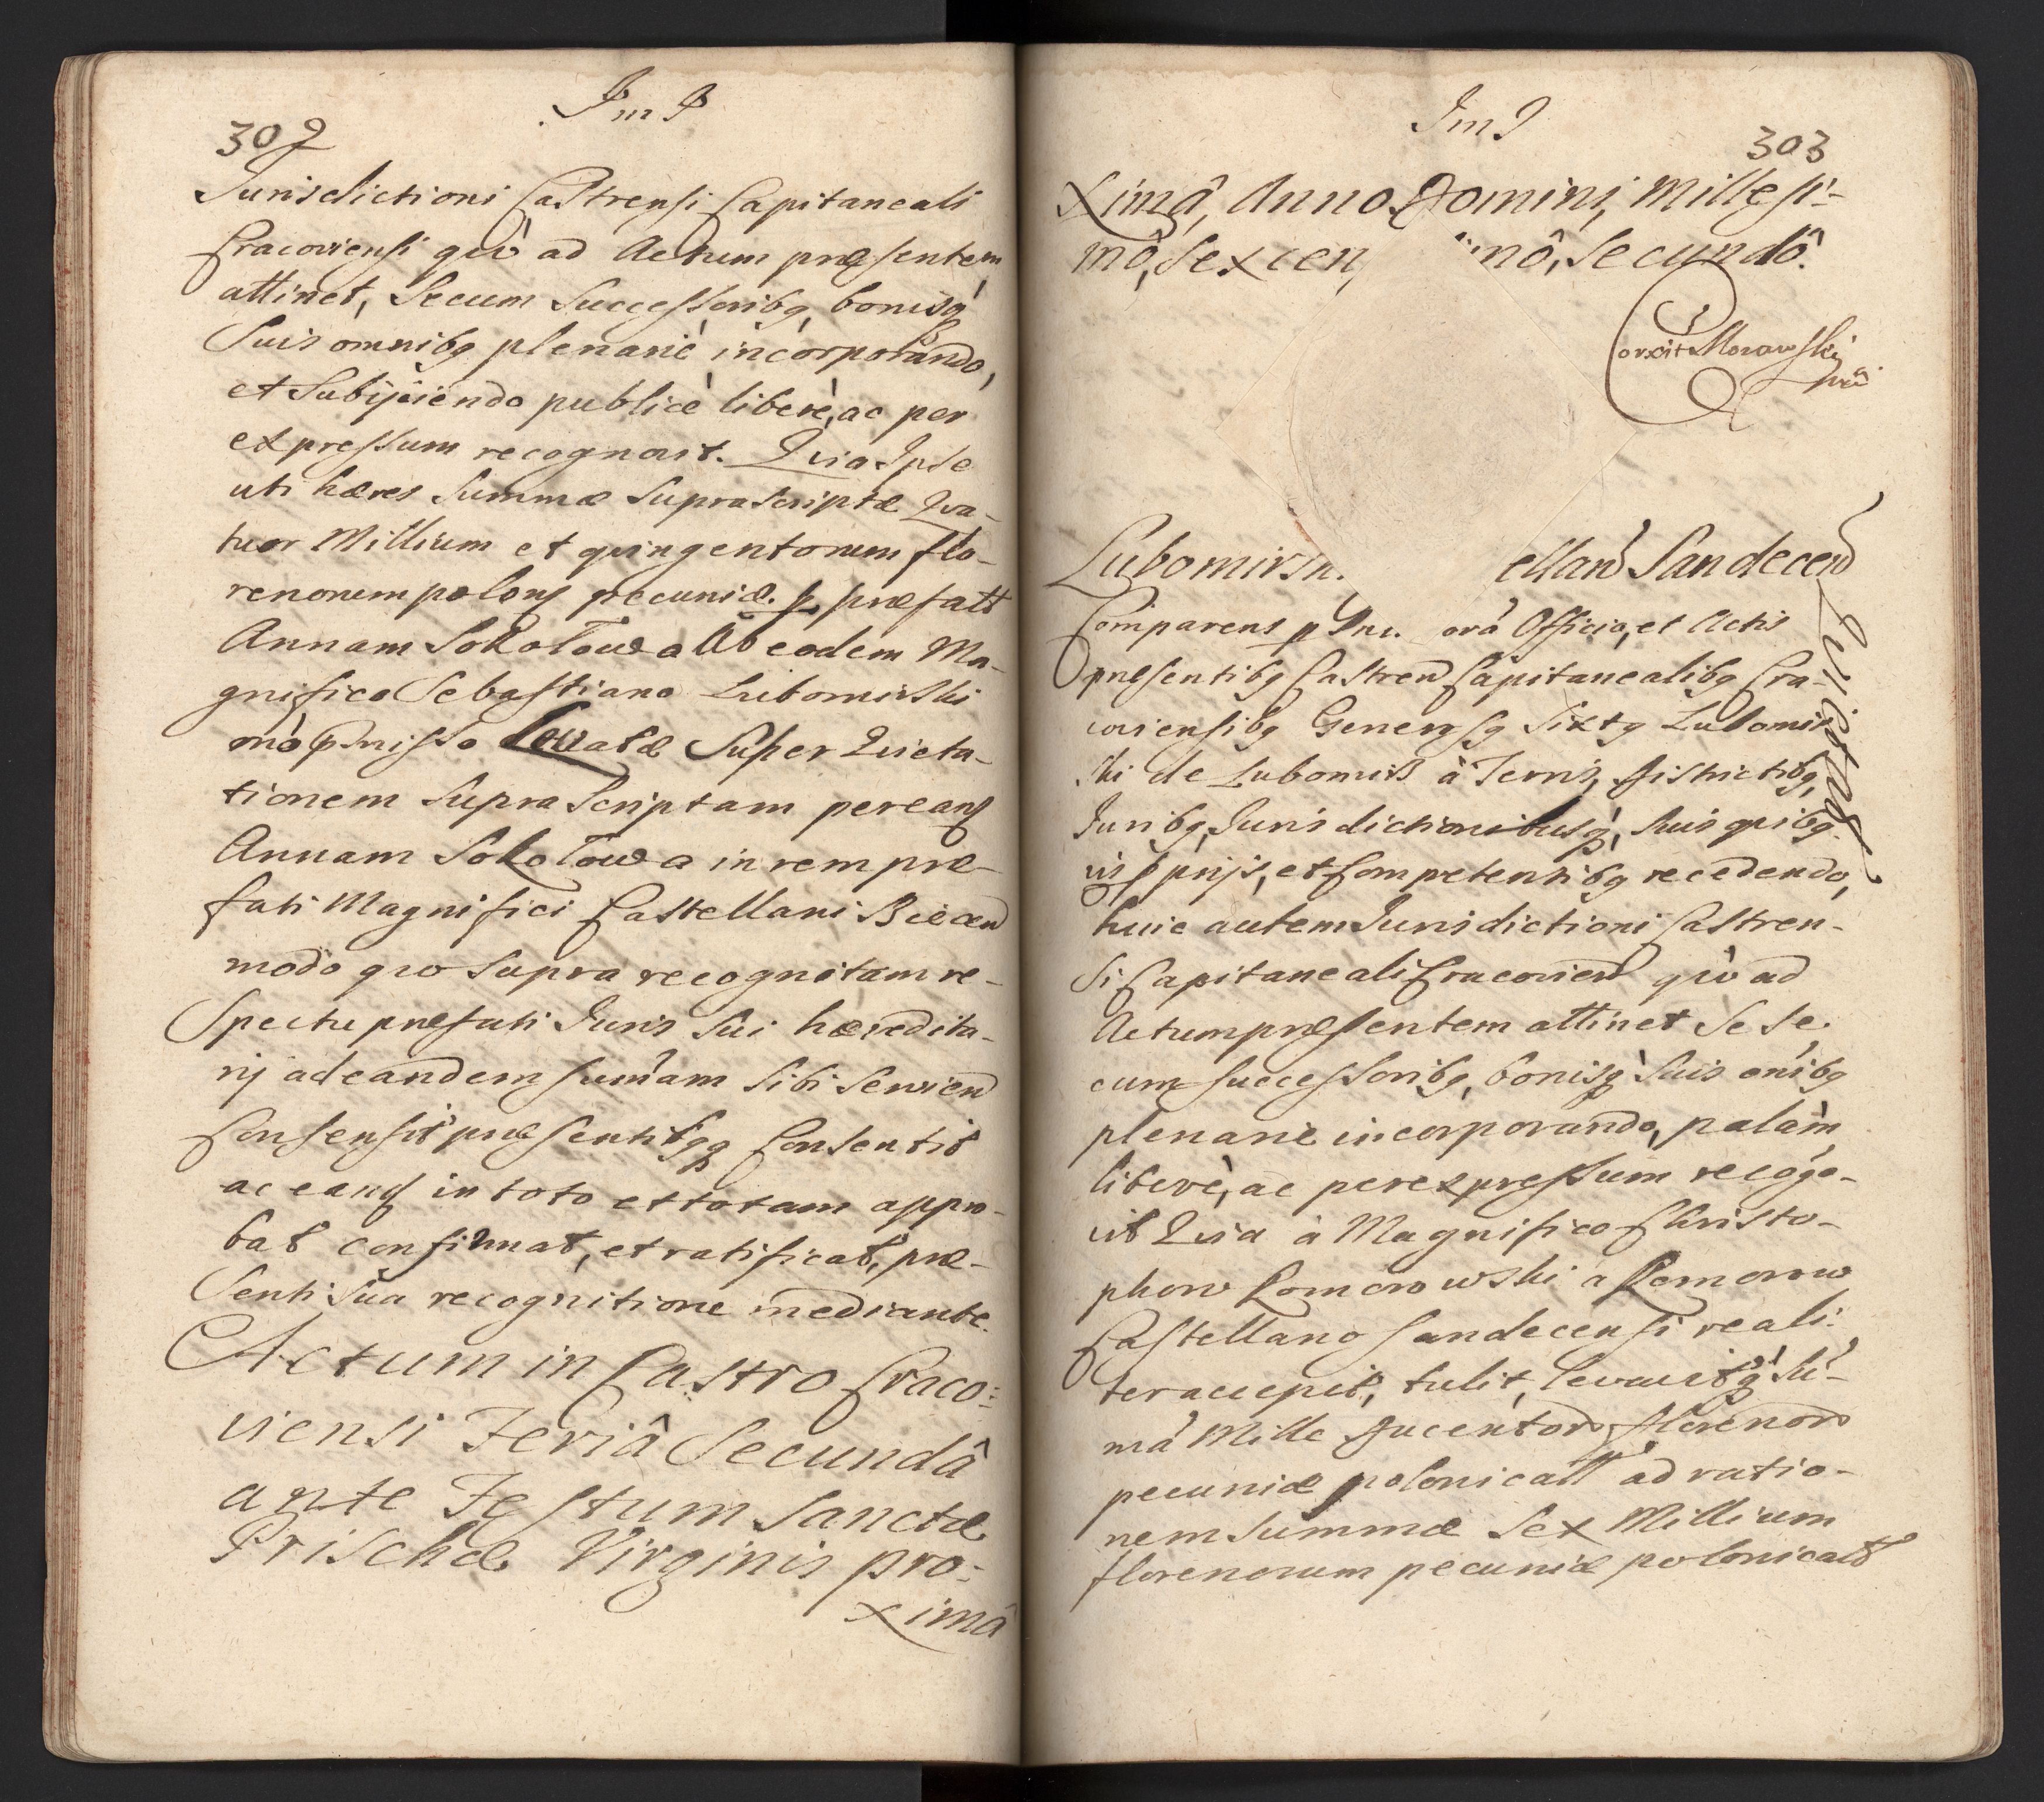 ImP
302
Jurisdictioni Castrensi Capitaneali
Cracoviensi quò ad Actum præsentem
attinet, Secum Successoribq, bonisq
Suis omnibq plenariè incorporando,
et Subijciendo publicè liberè, ac per
expressum recognovit. Quia Ipse
uti hæres Summæ Suprascriptæ Qua-
tuor Millium et quingentorum flo-
renorum polonq pecuniæ. p præfatt
Annam Sokołowa Ab eodem Ma-
gnifico Sebastiano Lubomirski
Levatæ Super Quieta-
tionem Supra Scriptam per eanq
Annam Sokołowa in rem præ-
fati Magnifici Castellani Biecen
modo quo Supra recognitam re-
Spectu præfati Juris Sui hæredita-
rij ad eandem sumam Sibi Servien
Consensit præsentibqq Consentit
ac eanq in toto et totam appro-
bat confirmat, et ratificat, præ-
Senti Sua recognitione mediante.
Actum in Castro Craco-
viensi Feriâ Secundâ
ante Festum Sanctæ
Prischæ Virginis pro-
ximâ
ImJ
303
ximâ, Anno Domini, Millesi-
mô, Sexcen mô, Secundô.
Correxit Morawski
mp
Lubomirsk ellan Sandecen
Quietat
Comparens p orâ Officio, et Actis
præsentibq Castren Capitanealibq Cra-
coviensibq Generosq Sixtq Lubomir
ski de Lubomirz à Terris, Districtibq,
Juribq, Jurisdictionibusq, suis quibq-
vis pprijs, et Competentibq recedendo,
huic autem Jurisdictioni Castren-
Si Capitaneali Cracovien quò ad
Actum præsentem attinet Se Se,
cum successoribq, bonisq Suis onibq
plenariè incorporando, palàm
liberè, ac per expressum recogo-
vit Quia à Magnifico Christo-
phoro Komorowski a Komorow
Castellano Sandecensi reali-
ter accepit, tulit, levavitq Su-
mâ Mille Ducentor florenor
pecuniæ polonicatt ad ratio-
nem Summæ Sex Millium
florenorum pecuniæ polonicatt